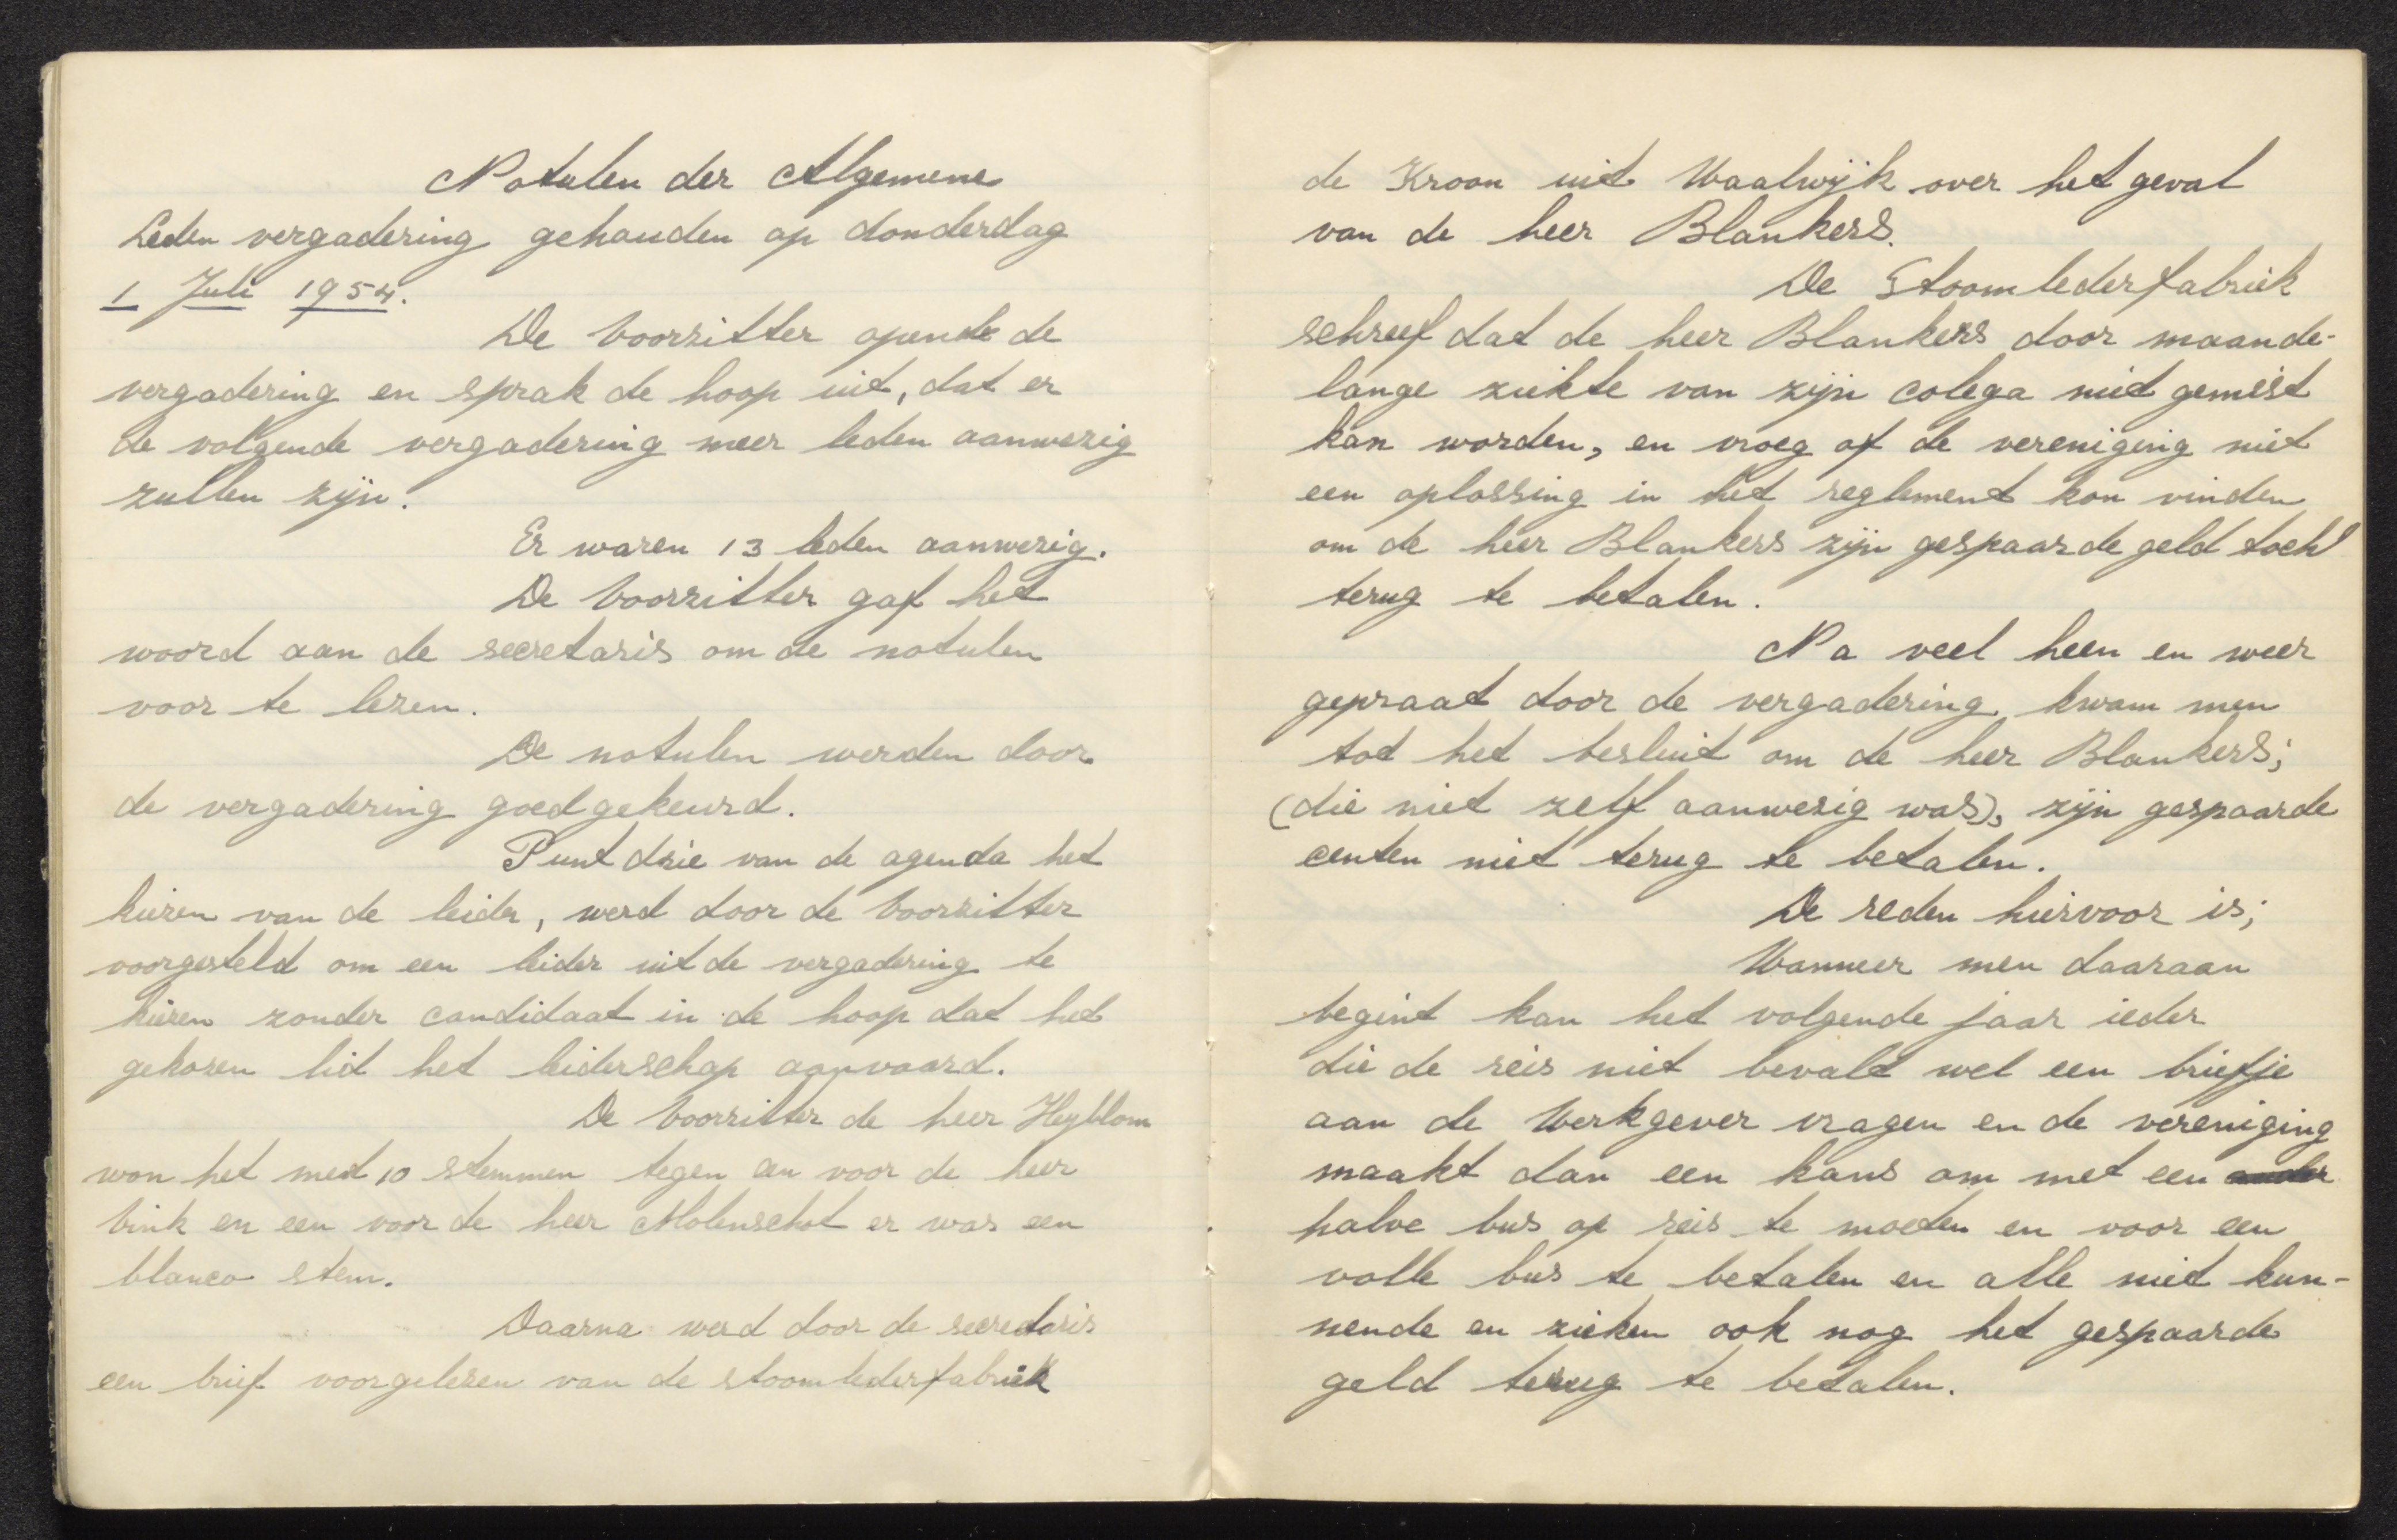 Notulen der Algemene
Leden vergadering gehouden op donderdag
1 Juli 1954.
De Voorzitter opende de
vergadering en sprak de hoop uit, dat er
de volgende vergadering meer leden aanwezig
zullen zijn.
Er waren 13 leden aanwezig.
De Voorzitter gaf het
woord aan de secretaris om de notulen
voor te lezen.
De notulen werden door
de vergadering goedgekeurd.
Punt drie van de agenda het
kiezen van de leider, werd door de Voorzitter
voorgesteld om een leider uit de vergadering te
kiezen zonder candidaat in de hoop dat het
gekozen lid het leiderschap aanvaard.
De Voorzitter de heer Heyblom
won het met 10 stemmen tegen een voor de heer
Vink en een voor de heer Molenschot er was een
blanco stem.
Daarna werd door de secretaris
een brief voorgelezen van de stoomlederfabriek
de Kroon uit Waalwijk over het geval
van de heer Blankers.
De Stoomlederfabriek
schreef dat de heer Blankers door maande-
lange ziekte van zijn colega niet gemist
kan worden, en vroeg of de vereniging niet
een oplossing in het reglement kon vinden
om de heer Blankers zijn gespaarde geld toch
terug te betalen.
Na veel heen en weer
gepraat door de vergadering kwam men
tot het besluit om de heer Blankers;
(die niet zelf aanwezig was), zijn gespaarde
centen niet terug te betalen.
De reden hiervoor is;
Wanneer men daaraan
begint kan het volgende jaar ieder
die de reis niet bevald wel een briefje
aan de Werkgever vragen en de vereniging
maakt dan een kans om met een
halve bus op reis te moeten en voor een
volle bus te betalen en alle niet kun-
nende en zieken ook nog het gespaarde
geld terug te betalen.